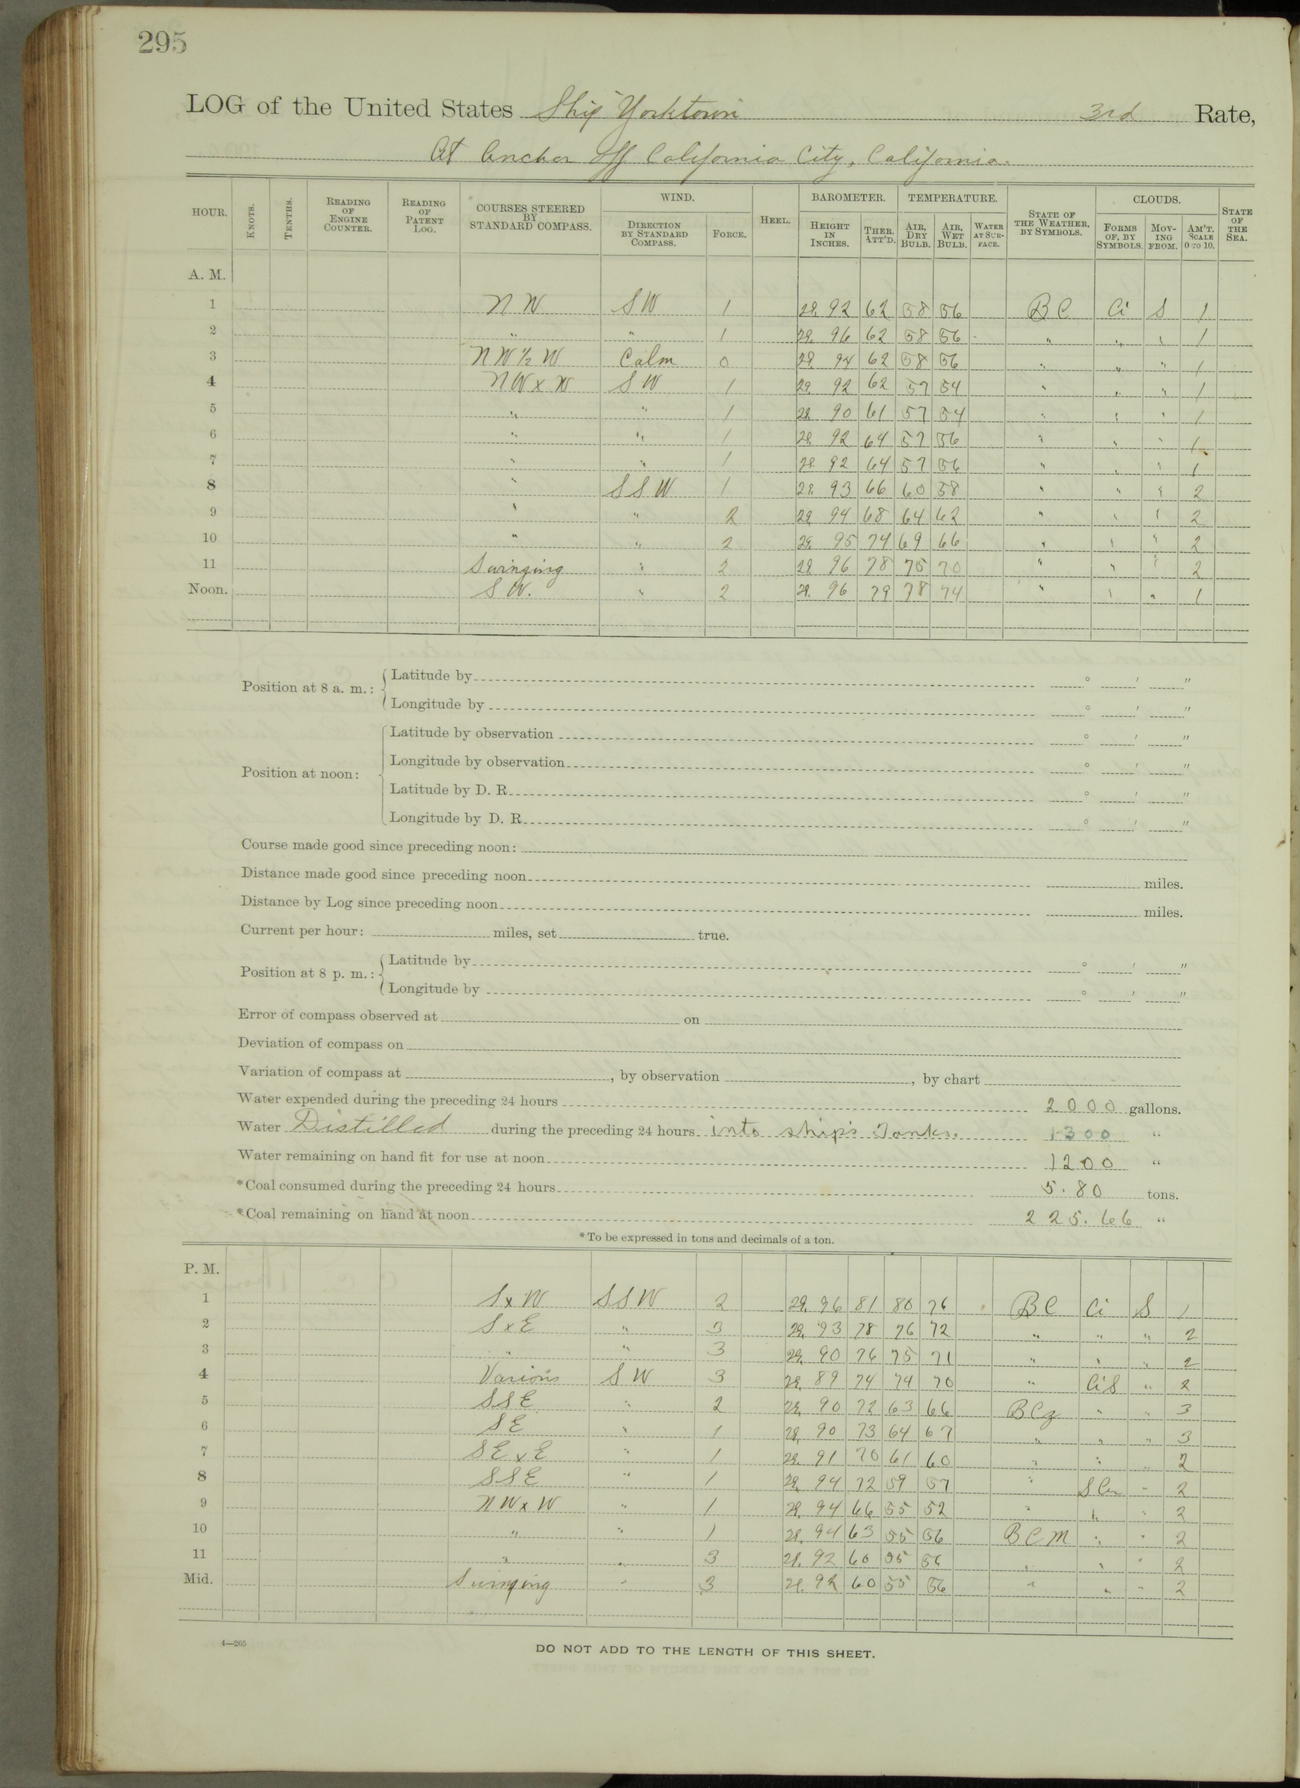 295
LOG of the United States Ship Yorktown 3rd Rate,
At Anchor off California City, California.
HOUR. KNOTS. TENTHS. READING OF ENGINE COUNTER. READING OF PATENT LOG. COURSES STEERED BY STANDARD COMPASS. WIND. DIRECTION BY STANDARD COMPASS. FORCE. HEEL. BAROMETER. HEIGHT IN INCHES. THER. ATT'D. TEMPERATURE. AIR, DRY BULB. AIR, WET BULB. WATER AT SURFACE. STATE OF THE WEATHER, BY SYMBOLS. CLOUDS. FORMS OF, BY SYMBOLS. MOVING FROM. AM'T. SCALE 0 TO 10. STATE OF THE SEA.
A. M.
1 NW SW 1 29. 92 62 58 56 BC Ci S 1
2 " " 1 29. 96 62 58 56 " " " 1
3 NW½W Calm 0 29 94 62 58 56 " " " 1
4 NWxW SW 1 29. 92 62 57 54 " " " 1
5 " " 1 29. 90 61 57 54 " " " 1
6 " " 1 29. 92 64 57 56 " " " 1
7 " " 1 29. 92 64 57 56 " " " 1
8 " SSW 1 29. 93 66 60 58 " " " 2
9 " " 2 29. 94 68 64 62 " " " 2
10 " " 2 29. 95 74 69 66 " " " 2
11 Swinging " 2 29. 96 78 75 70 " " " 2
Noon. SW. " 2 29. 96 79 78 74 " " " 1
Position at 8 a. m.: Latitude by ° ' "
Longitude by ° ' "
Position at noon: Latitude by observation ° ' "
Longitude by observation ° ' "
Latitude by D. R. ° ' "
Longitude by D. R. ° ' "
Course made good since preceding noon:
Distance made good since preceding noon miles.
Distance by Log since preceding noon miles.
Current per hour: miles, set true.
Position at 8 p. m.: Latitude by ° ' "
Longitude by ° ' "
Error of compass observed at on
Deviation of compass on
Variation of compass at , by observation , by chart
Water expended during the preceding 24 hours 2000 gallons.
Water Distilled during the preceding 24 hours into ship's Tanks. 1300 "
Water remaining on hand fit for use at noon 1200 "
*Coal consumed during the preceding 24 hours 5.80 tons.
*Coal remaining on hand at noon 225.66 "
*To be expressed in tons and decimals of a ton.
P. M.
1 SxW SSW 2 29. 96 81 80 76 BC Ci S 1
2 SxE " 3 29. 93 78 76 72 " " " 2
3 " " 3 29. 90 76 75 71 " " " 2
4 Various SW 3 29. 89 74 74 70 " CiS " 2
5 SSE " 2 29. 90 72 63 66 BCz " " 3
6 SE " 1 29. 90 73 64 67 " " " 3
7 SExE " 1 29. 91 70 61 60 " " " 2
8 SSE " 1 29. 94 72 59 57 " SCu " 2
9 NWxW " 1 29. 94 66 55 52 " " " 2
10 " " 1 29. 94 63 55 56 BCM " " 2
11 " " 3 29. 92 60 55 56 " " " 2
Mid. Swinging " 3 29. 92 60 55 56 " " " 2
4—265
DO NOT ADD TO THE LENGTH OF THIS SHEET.